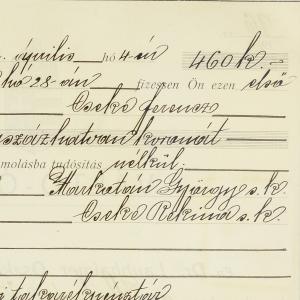 április hó 4-én 460 k.-
hó 28-án fizessen Ön ezen első
Cseke Ferencz
százhatvan koronát
molásba tudósítás nélkül.
Markotán György s. k.
Cseke Rekina s. k.
takarékpénztár